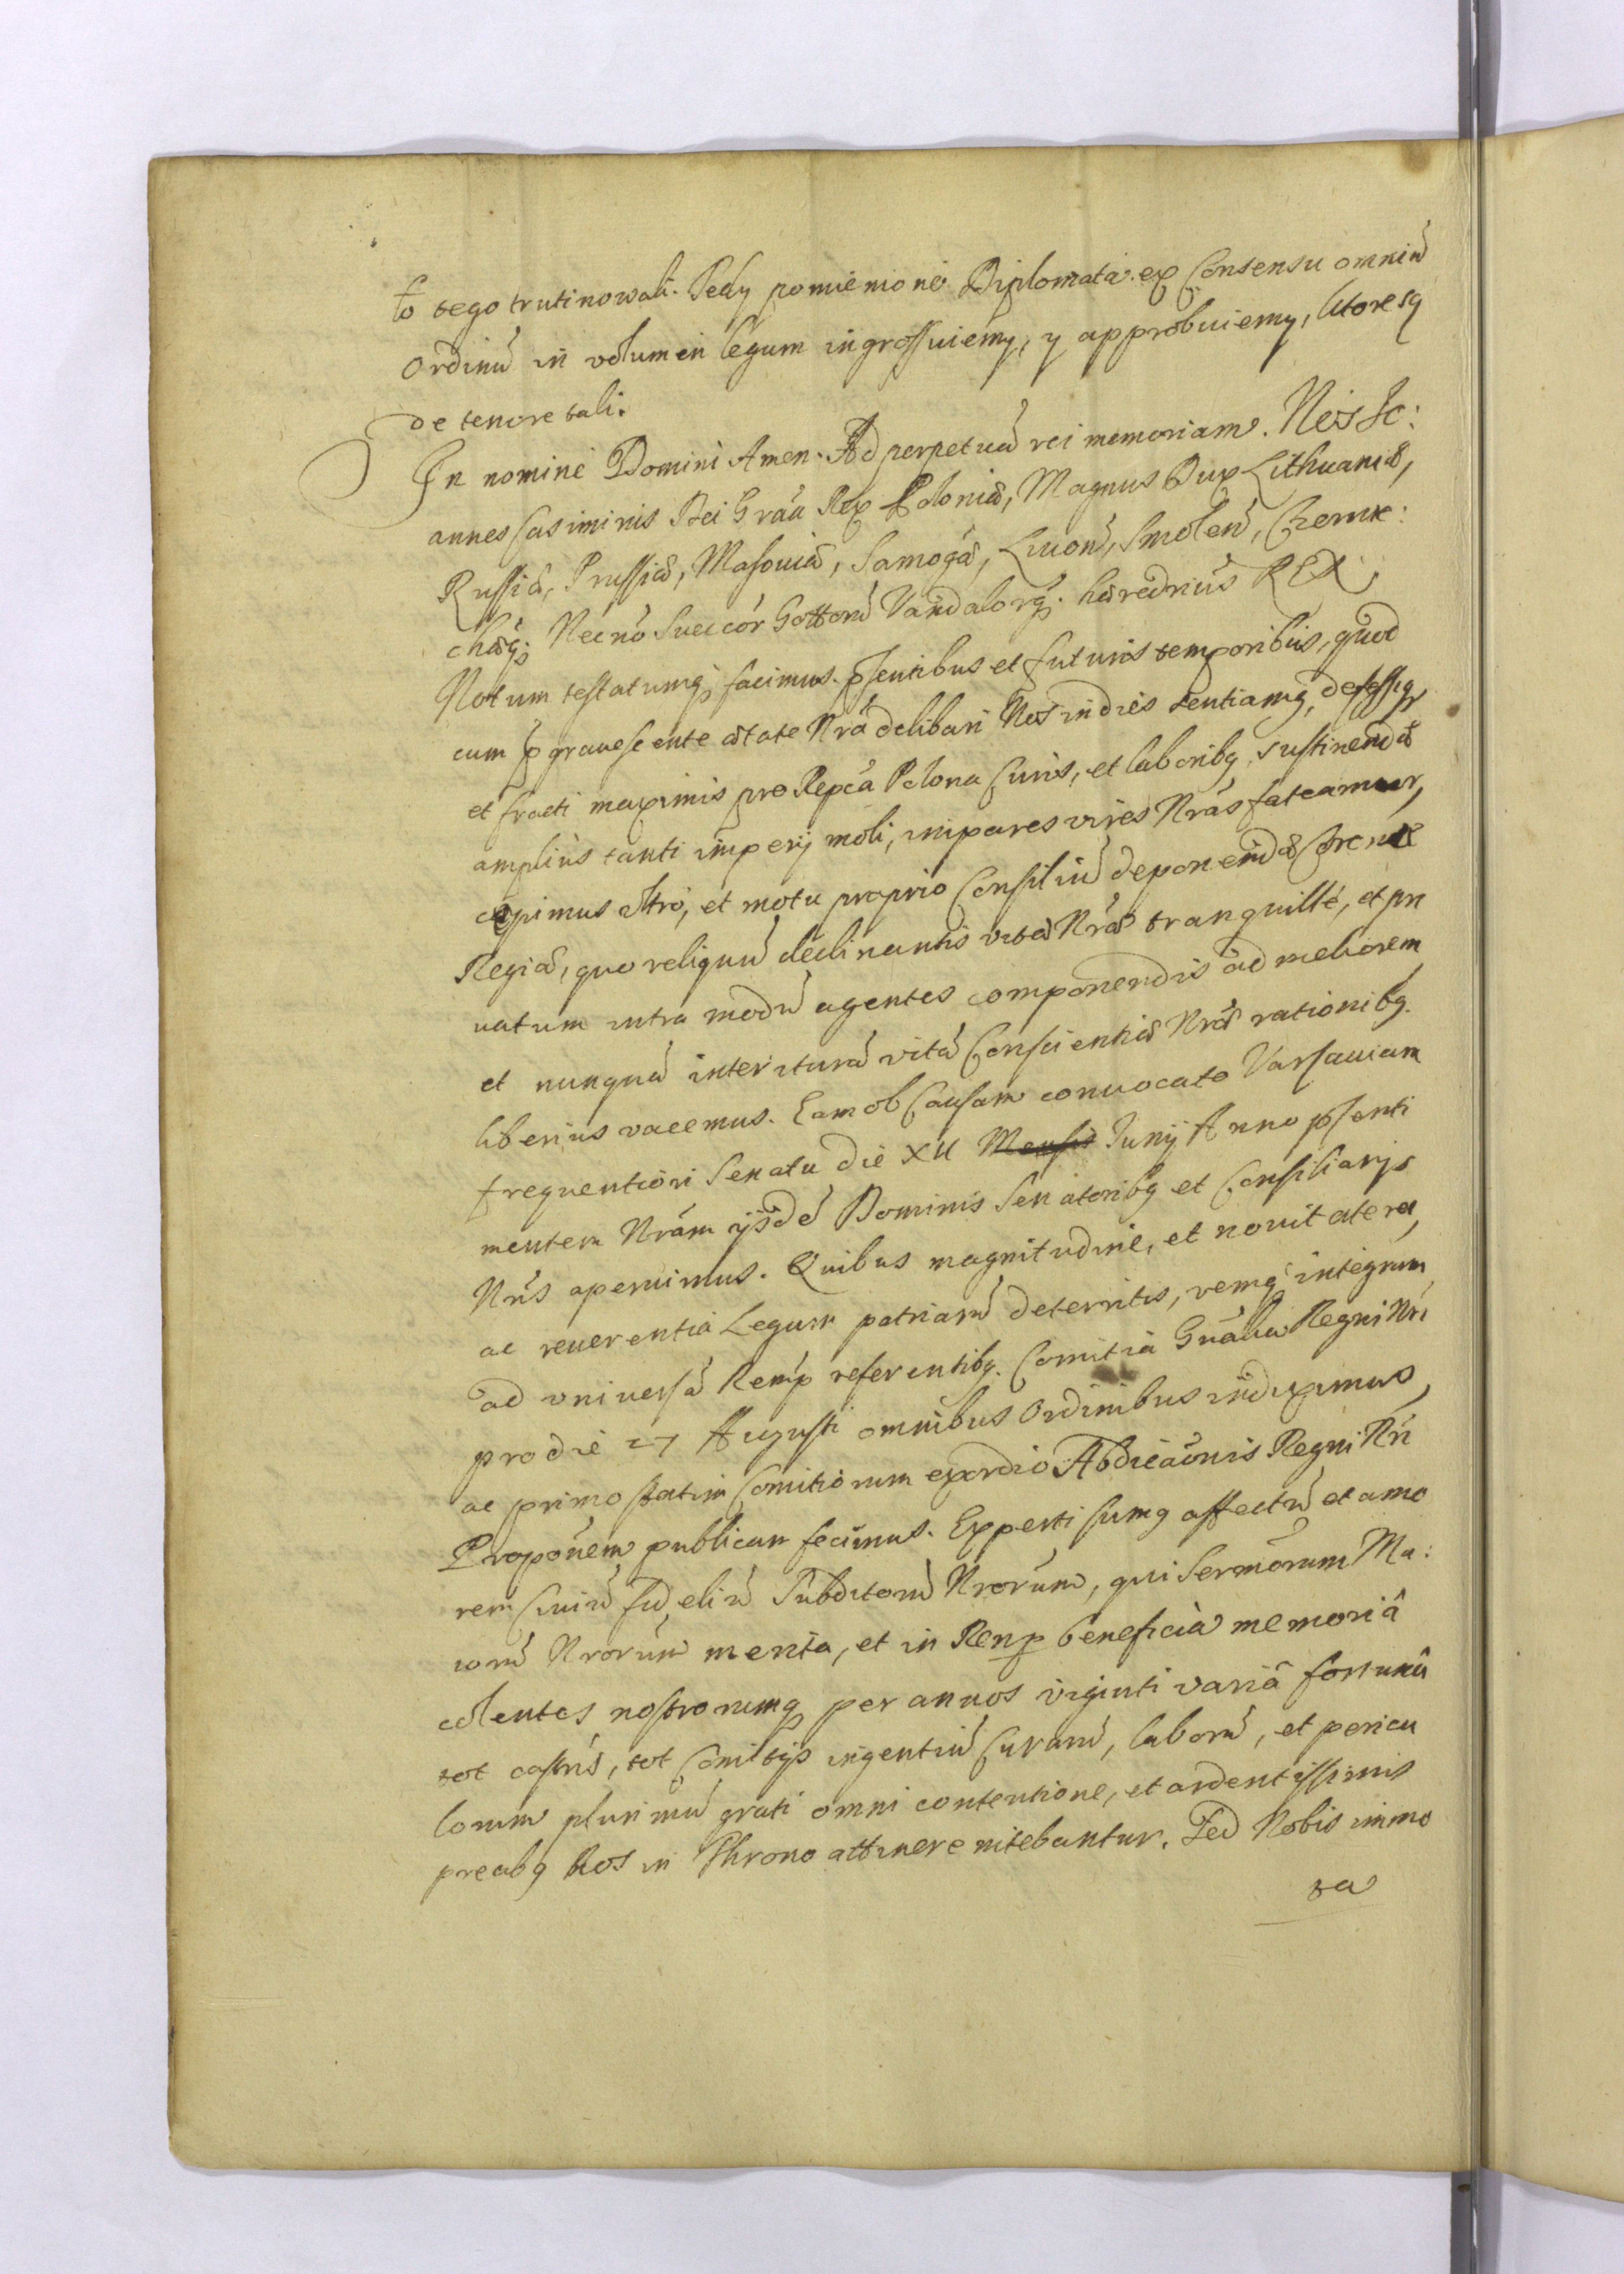 to tego trutinowali. Tedy pomienione Diplomata ex Consensu omniũ
Ordinũ in volumen legum ingrossuiemy, y approbuiemy, ktore sq
de tenore tali.
In nomine Domini Amen. Ad perpetuã rei memoriam. Nos Jo:
annes Casimirus Dei Grãa Rex Poloniæ, Magnus Dux Lithuaniæ,
Russiæ, Prussiæ, Masouiæ, Samogæ, Liuonĩ, Smolen̄, Czernic:
chœq; Nec nõ Suecor Gottorũ Vandalorq; hæredrius REX,
Notum testatumq; facimus pñtibus et futuris temporibus, quod
cum ingrauescente ætate Nrã delibari Nos in dies sentiamq, defessiq
et fracti maximis pro Repcã Polona Curis, et laboribq, sustinendæ
amplius tanti imperij moli, impares vires Nras fateamur,
cepimus ultro, et motu proprio Consiliũ deponendæ Coronæ
Regiæ, quo reliquũ declinantis vitæ Nræ tranquille, et pri
uatum intra modũ agentes componendis ad meliorem
et nunquã interiturã vitã Conscientiæ Nræ rationibq.
liberius vacemus. Eam ob Causam conuocato Varsauiam
frequentiori Senatu die XII Mensis Junij Anno pñsenti
mentem Nrãm ijsdẽ Dominis Senatoribq et Consiliarijs
Nris aperuimus. Quibus magnitudine, et nouitate rei,
ac reuerentia Legum patriarũ deterritis, remq integrum
ad vniuersã Remp referentibq. Comitia Gnãlia Regni Nri
pro die 27 Augusti omnibus Ordinibus indiximus,
ac primo statim Comitiorum exordio Abdicãonis Regni Nri
Propõnem publicam fecimus. Experti sumq affectũ et amo
rem Ciuiũ fideliũ Subditorũ Nrorum, qui Sermõrum Ma:
iorũ Nrorum merita, et in Remp beneficia memoriâ
colentes nostrorumq per annos viginti variâ fortunâ
tot castris, tot Comitijs ingentiũ Curarũ, laborũ, et pericu
lorum plurimũ grati omni contentione, et ardentissimis
precibq Nos in Throno attinere nitebantur. Sed Nobis immo
ta